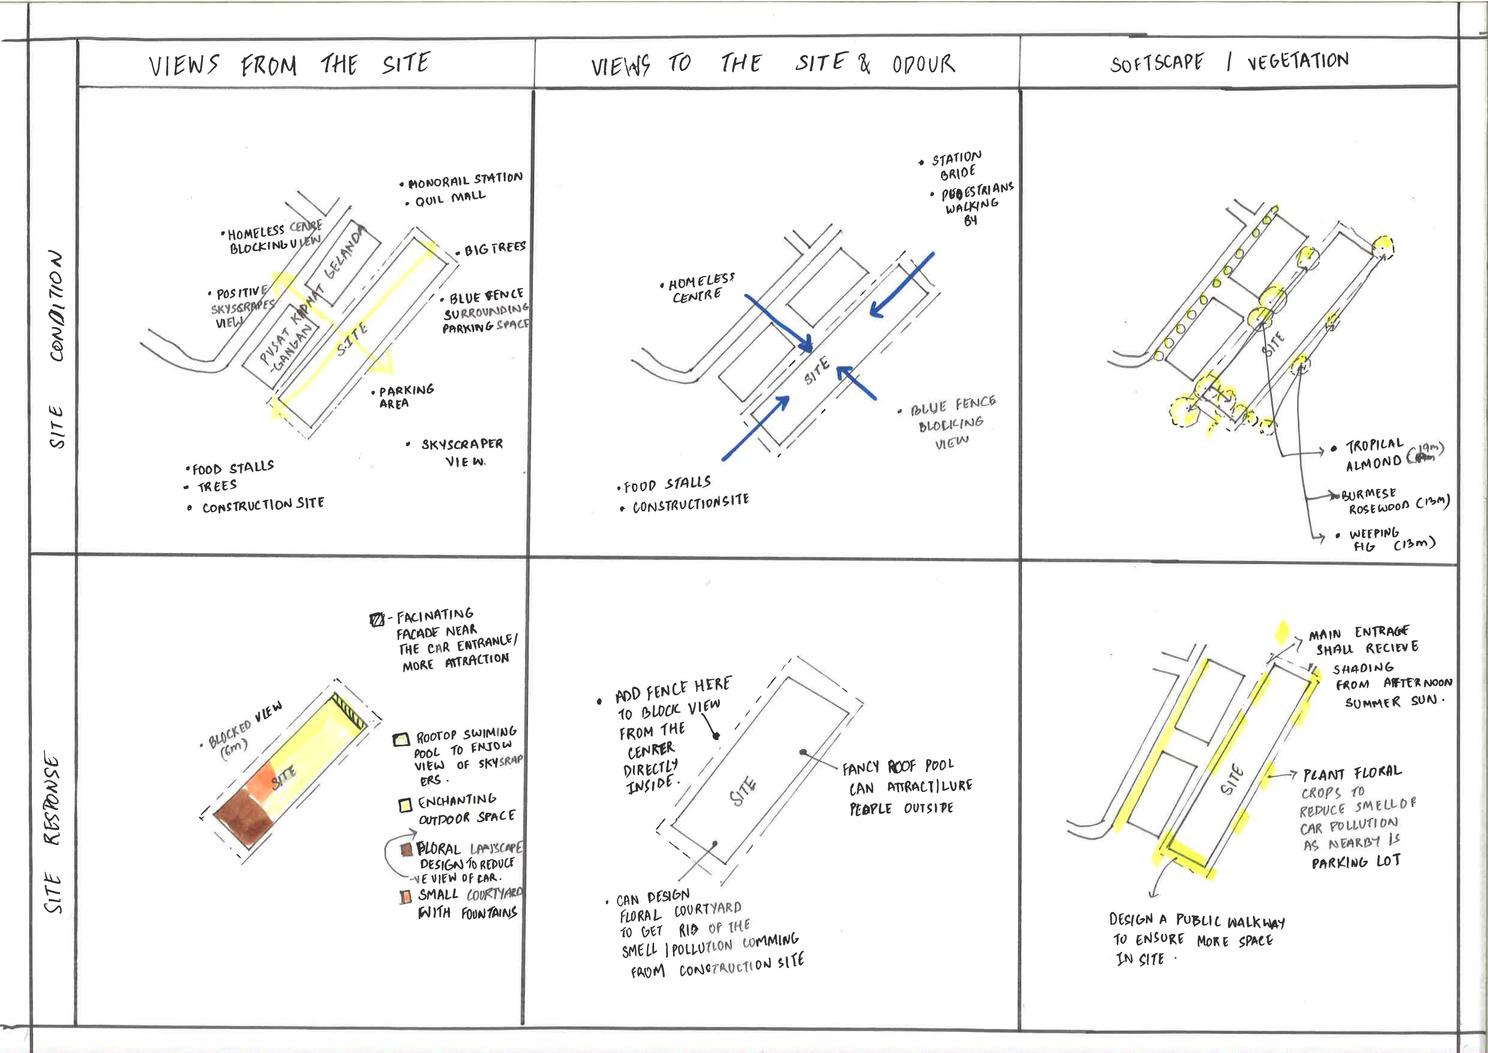 VIEWS FROM THE SITE
VIEWS TO THE SITE & ODOUR
SOFTSCAPE / VEGETATION
SITE CONDITION
• MONORAIL STATION
• QUIL MALL
• HOMELESS CENRE
BLOCKING VIEW
• BIG TREES
• POSITIVE
SKYSCRAPES
VIEW
• BLUE FENCE
SURROUNDING
PARKING SPACE
PUSAT KHIDMAT GELANDA
-GANGAN
SITE
• PARKING
AREA
• SKYSCRAPER
VIEW.
• FOOD STALLS
• TREES
• CONSTRUCTION SITE
• STATION
BRIDE
• PEDESTRIANS
WALKING
BY
• HOMELESS
CENTRE
SITE
• BLUE FENCE
BLOCKING
VIEW
• FOOD STALLS
• CONSTRUCTION SITE
SITE
• TROPICAL
ALMOND (19m)
• BURMESE
ROSEWOOD (13m)
• WEEPING
FIG (13m)
SITE RESPONSE
- FACINATING
FACADE NEAR
THE CAR ENTRANCE/
MORE ATTRACTION
• BLOCKED VIEW
(6m)
SITE
ROOTOP SWIMING
POOL TO ENJOW
VIEW OF SKYSRAP
ERS.
ENCHANTING
OUTDOOR SPACE
FLORAL LANSCAPE
DESIGN TO REDUCE
-VE VIEW OF CAR.
SMALL COURTYARD
WITH FOUNTAINS
• ADD FENCE HERE
TO BLOCK VIEW
FROM THE
CENRER
DIRECTLY
INSIDE.
SITE
FANCY ROOF POOL
CAN ATTRACT/LURE
PEOPLE OUTSIDE
• CAN DESIGN
FLORAL COURTYARD
TO GET RID OF THE
SMELL/POLLUTION COMMING
FROM CONSTRUCTION SITE
MAIN ENTRAGE
SHALL RECIEVE
SHADING
FROM AFTERNOON
SUMMER SUN.
SITE
PLANT FLORAL
CROPS TO
REDUCE SMELL OF
CAR POLLUTION
AS NEARBY IS
PARKING LOT
DESIGN A PUBLIC WALKWAY
TO ENSURE MORE SPACE
IN SITE.